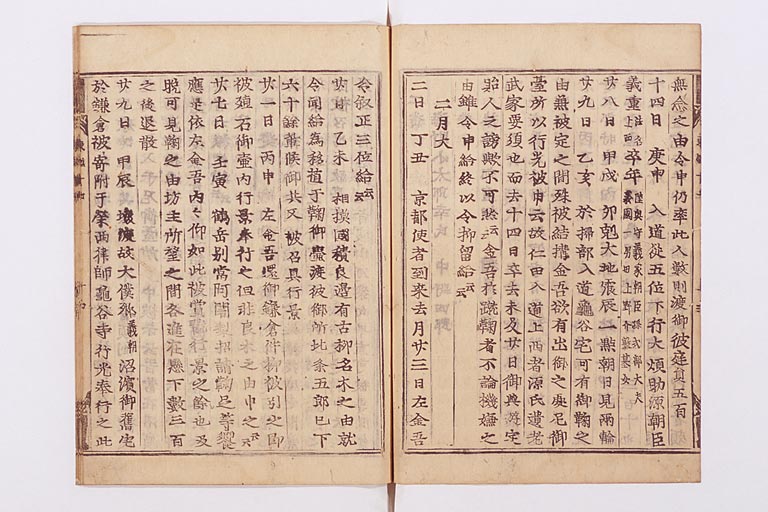 無念之由令申仍率此人数則渡御彼庭員五百
十四日 庚申 入道従五位下行大炊助源朝臣
義重
卒年
廿八日 甲戌 卯剋大地震辰一點朝日見兩輪
廿九日 乙亥 於掃部入道龜谷宅可有御鞠之
由兼被定之間殊被結搆金吾欲有出御之處尼御
臺所以行光被申云故仁田入道上西者源氏遺老
武家要須也而去十四日卒去未及廿日御興遊定
貽人之謗歟不可然云云金吾於蹴鞠者不論機嫌之
由雖令申給終以令抑留給云云
二月大
二日 丁丑 京都使者到來去月廿三日左金吾
令叙正三位給云云
乙未 相摸國積良邊有古柳名木之由就
令聞給爲移植于鞠御壷渡彼御所北条五郎已下
六十餘輩候御共又被召具行景
廿一日 丙申 左金吾還御鎌倉件柳被引之即
被殖石御壷内行景奉行之但非良木之由申之云云
廿七日 壬寅 鶴岳別當阿闍梨招請鞠足等饗
應是依左金吾内々仰如此被賞翫行景之餘也及
晩可見鞠之由坊主所望之間各進在懸下數三百
之後退散
廿九日 甲辰 壊渡故大僕卿義朝沼濱御舊宅
於鎌倉被寄附于榮西律師龜谷寺行光奉行之此